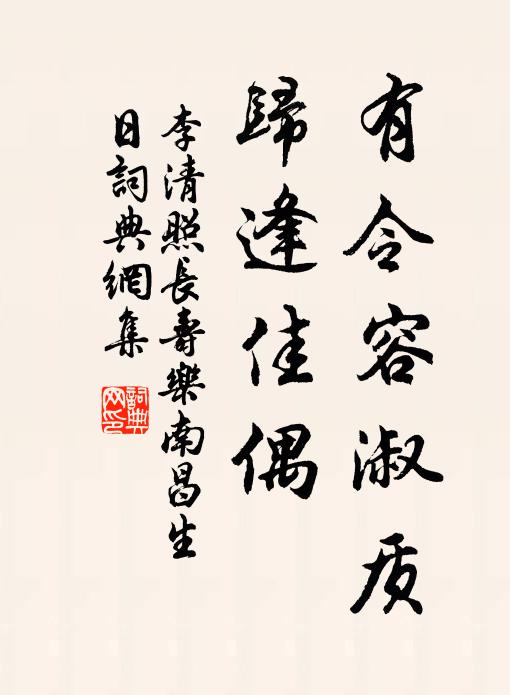 有令容淑质
歸逢佳偶
李清照長壽樂南昌生
日詞典網集
詞典
网印